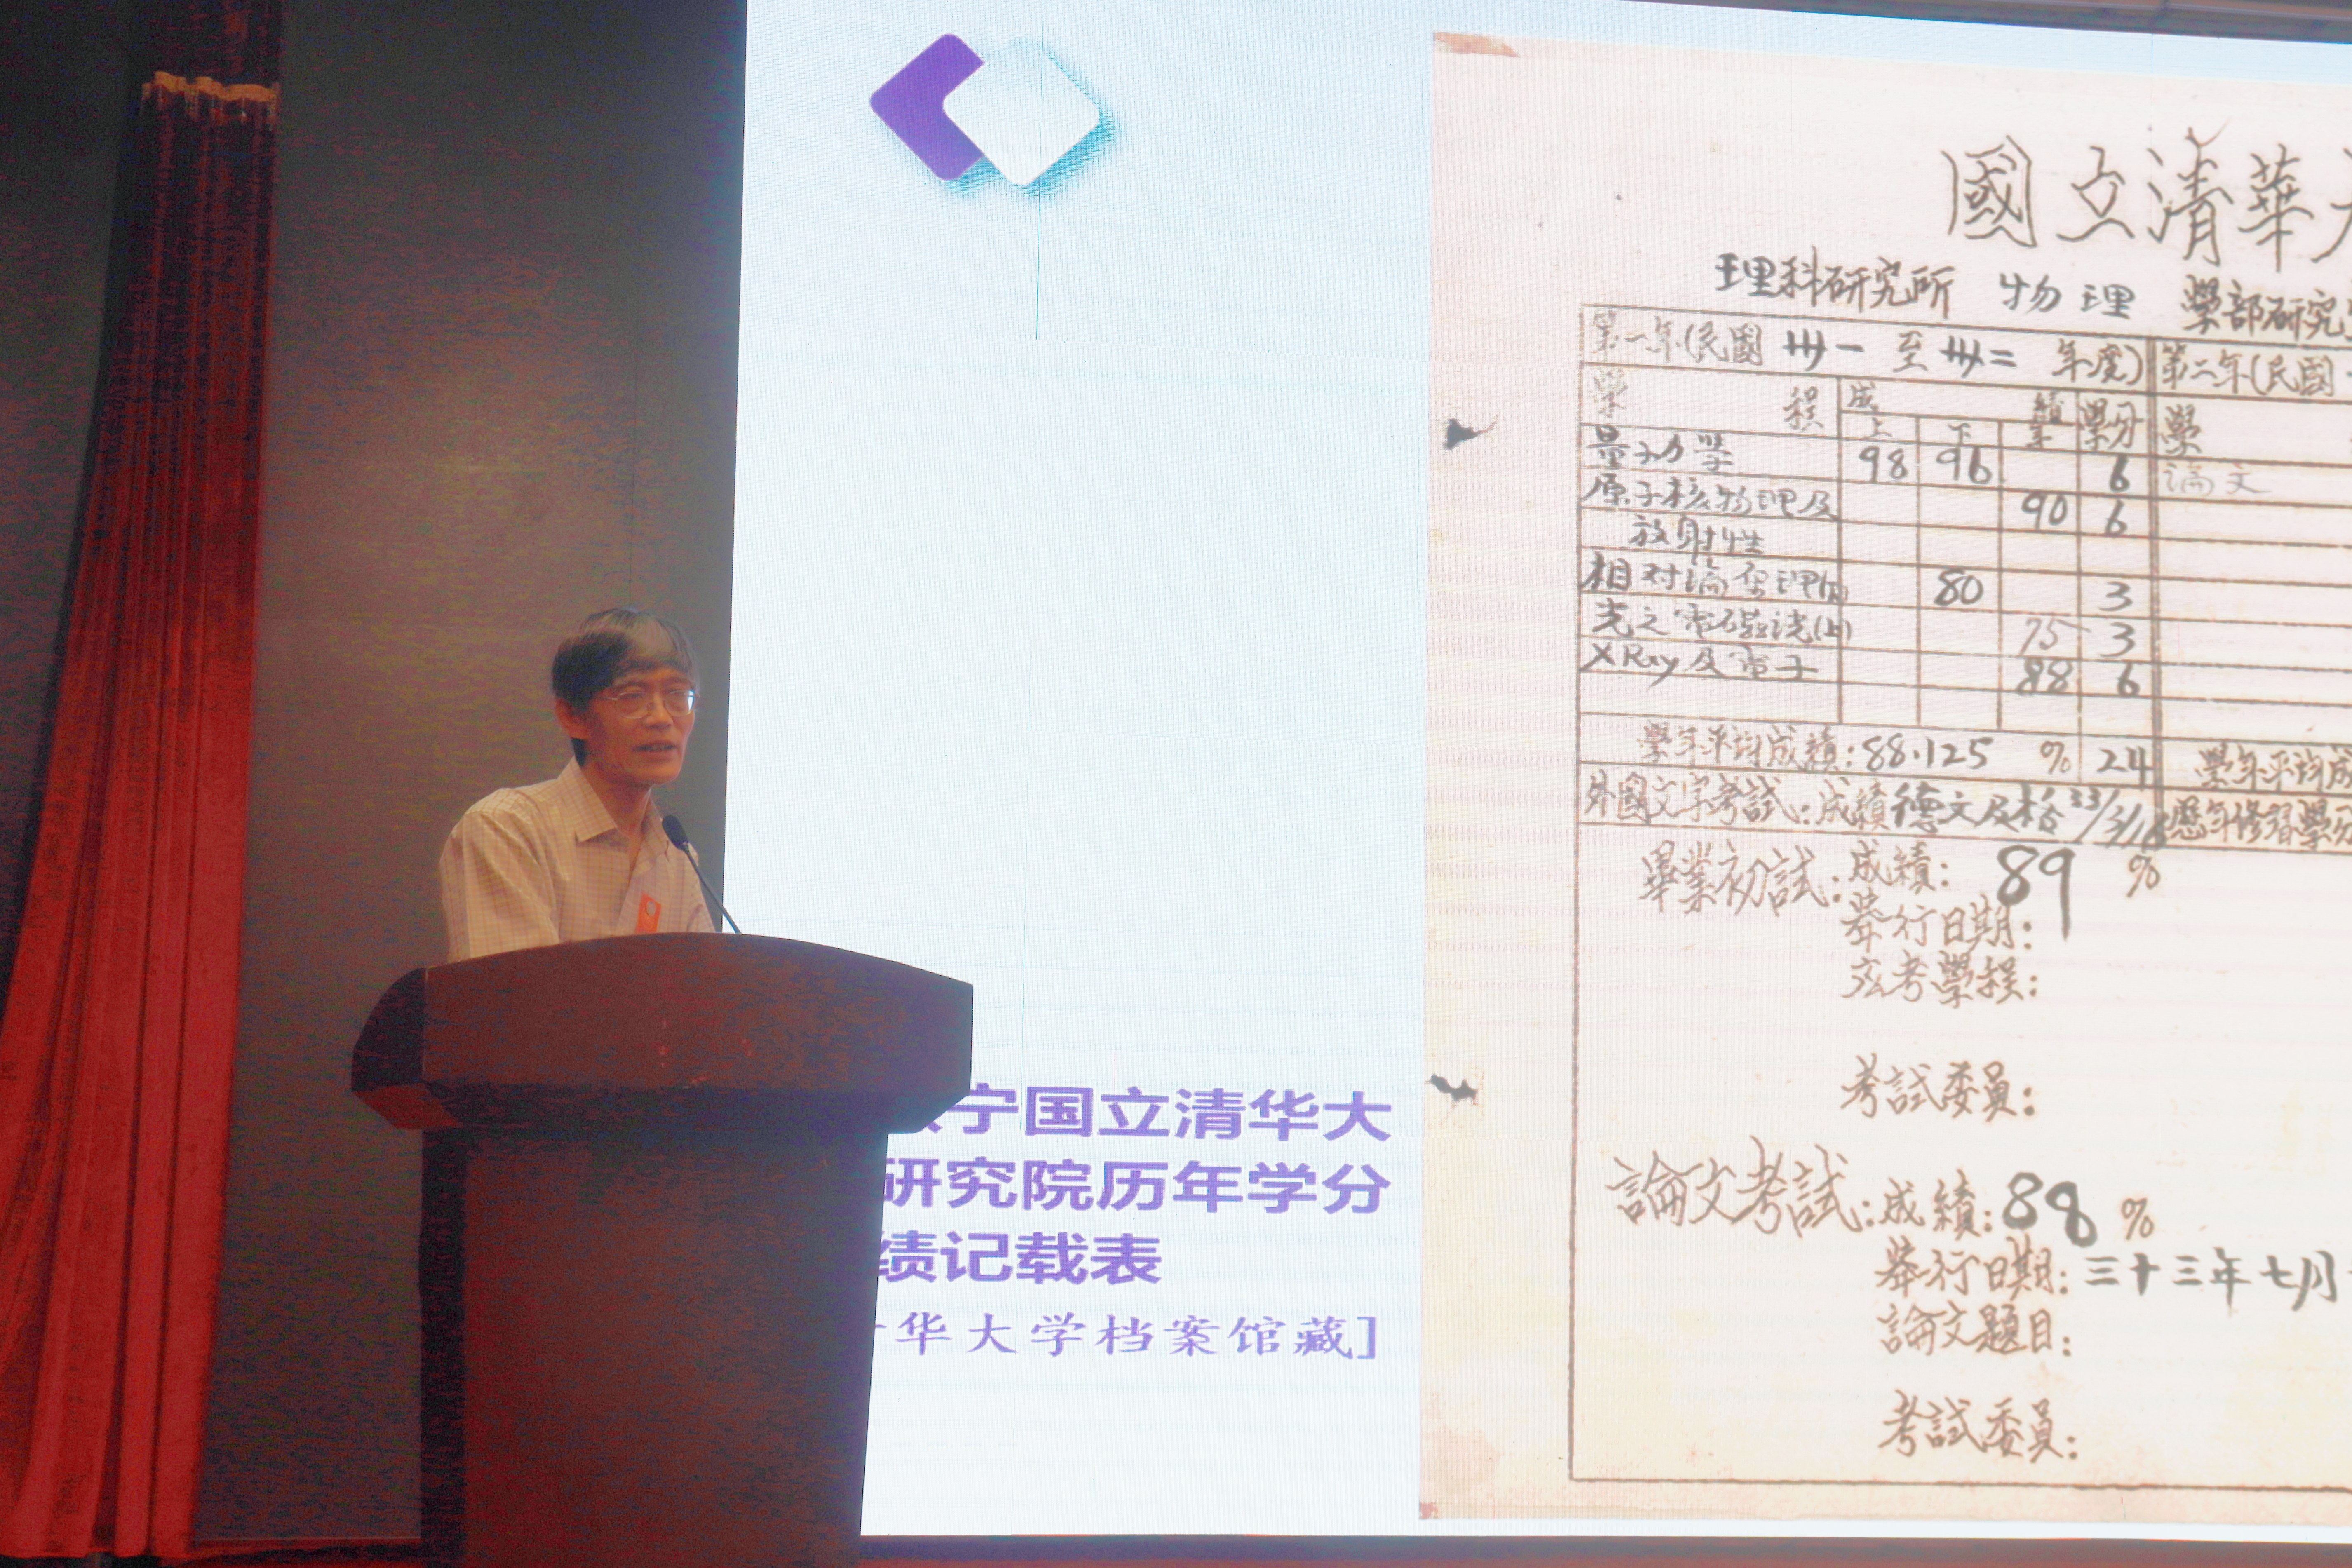 宁国立清华大
研究院历年学分
绩记载表
华大学档案馆藏]
國立清華
理科研究所 物理 學部研究
第一年(民國 卅一 至 卅二 年度) 第二年(民國
學 程 成 績 學分 學
上 下 年
量子力学 98 96 6 論文
原子核物理及 90 6
放射性
相对論原理(下) 80 3
光之電磁说(上) 75 3
X Ray 及電子 88 6
學年平均成績:88.125 % 24 學年平均成
外國文字考試:成績德文及格33/3/18 歷年修習學分
畢業初試:成績: 89 %
舉行日期:
應考學程:
考試委員:
論文考試:成績:88 %
舉行日期:三十三年七月
論文題目:
考試委員: